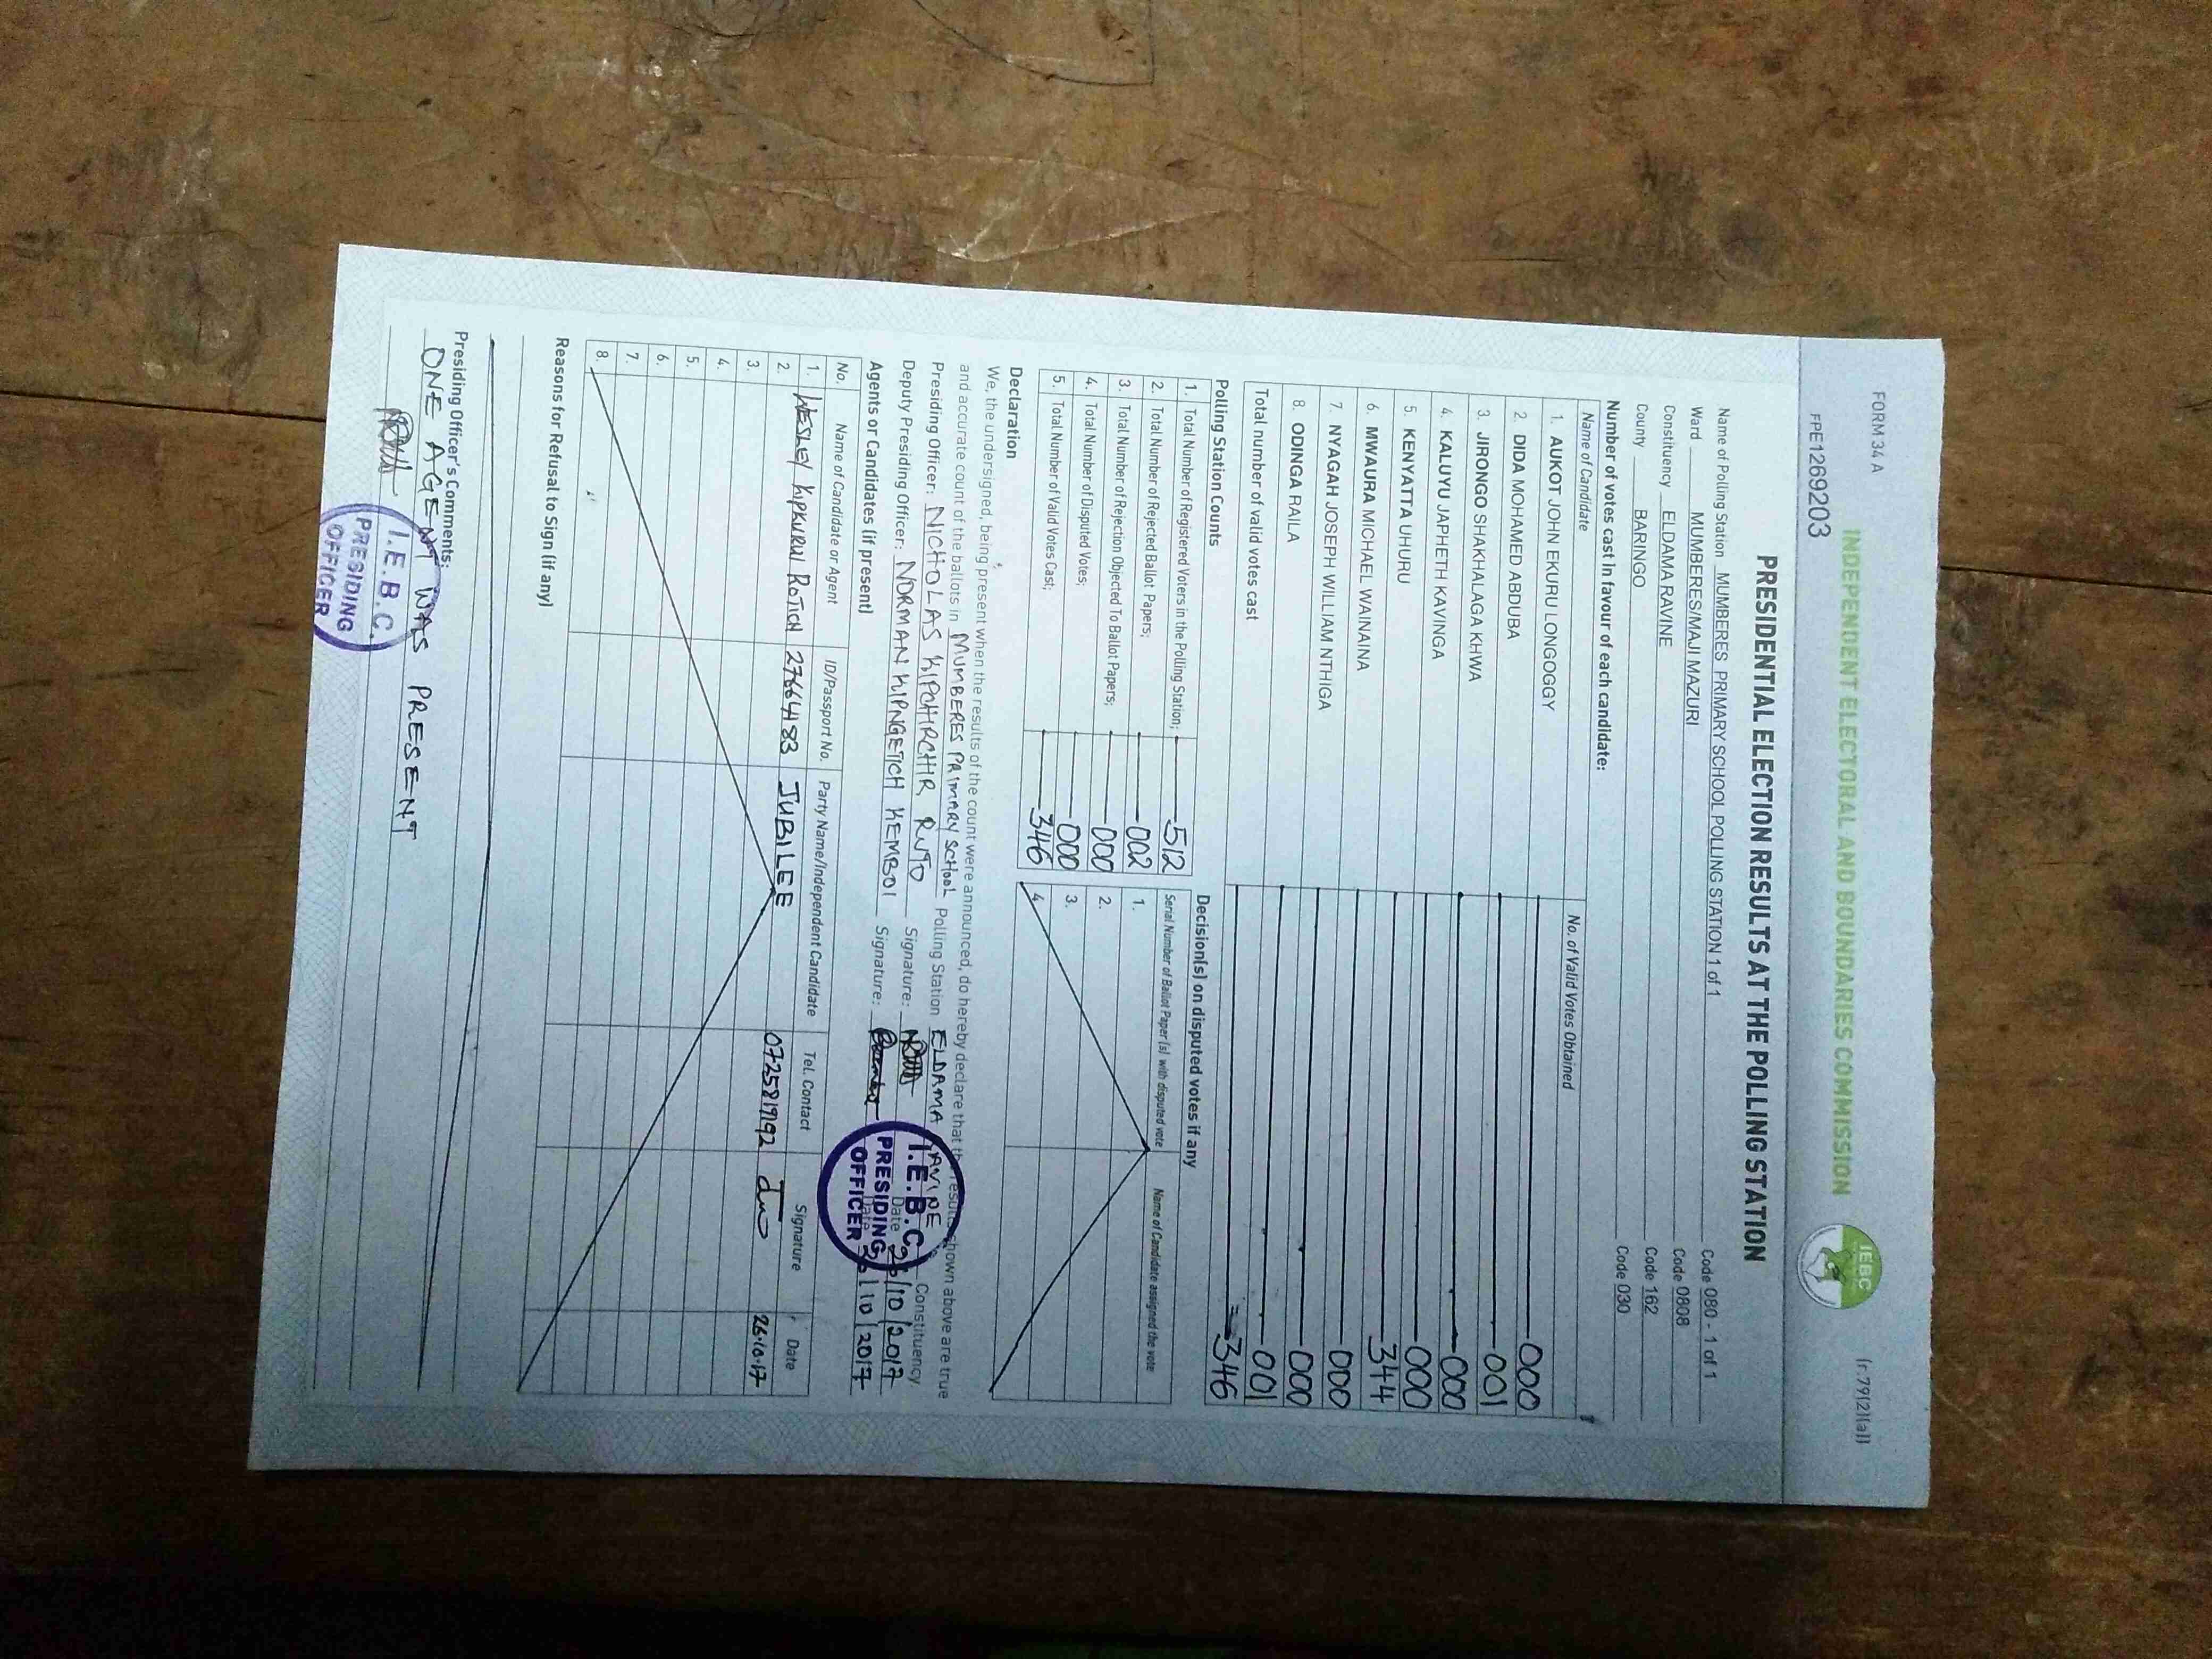 FORM 34 A (r.79(2)(a))
INDEPENDENT ELECTORAL AND BOUNDARIES COMMISSION IEBC
FPE1269203
PRESIDENTIAL ELECTION RESULTS AT THE POLLING STATION
Name of Polling Station MUMBERES PRIMARY SCHOOL POLLING STATION 1 of 1 Code 080 - 1 of 1
Ward MUMBERES/MAJI MAZURI Code 0808
Constituency ELDAMA RAVINE Code 162
County BARINGO Code 030
Number of votes cast in favour of each candidate:
Name of Candidate No. of Valid Votes Obtained
1. AUKOT JOHN EKURU LONGOGGY 000
2. DIDA MOHAMED ABDUBA 001
3. JIRONGO SHAKHALAGA KHWA 000
4. KALUYU JAPHETH KAVINGA 000
5. KENYATTA UHURU 344
6. MWAURA MICHAEL WAINAINA 000
7. NYAGAH JOSEPH WILLIAM NTHIGA 000
8. ODINGA RAILA 001
Total number of valid votes cast 346
Polling Station Counts Decision(s) on disputed votes if any
1. Total Number of Registered Voters in the Polling Station; 512 Serial Number of Ballot Paper (s) with disputed vote Name of Candidate assigned the vote
2. Total Number of Rejected Ballot Papers; 002 1.
3. Total Number of Rejection Objected To Ballot Papers; 000 2.
4. Total Number of Disputed Votes; 000 3.
5. Total Number of Valid Votes Cast; 346 4.
Declaration
We, the undersigned, being present when the results of the count were announced, do hereby declare that the results shown above are true
and accurate count of the ballots in MUMBERES PRIMARY SCHOOL Polling Station ELDAMA RAVINE Constituency
Presiding Officer: NICHOLAS KIPCHIRCHIR RUTO Signature: Date 26/10/2017
Deputy Presiding Officer: NORMAN KIPNGETICH KEMBOI Signature: Date 26/10/2017
I.E.B.C.
PRESIDING
OFFICER
Agents or Candidates (if present)
No. Name of Candidate or Agent ID/Passport No. Party Name/Independent Candidate Tel. Contact Signature Date
1. WESLEY KIPKURUI ROTICH 27664183 JUBILEE 0725819192 26.10.17
2.
3.
4.
5.
6.
7.
8.
Reasons for Refusal to Sign (if any)
Presiding Officer's Comments:
ONE AGENT WAS PRESENT
I.E.B.C.
PRESIDING
OFFICER